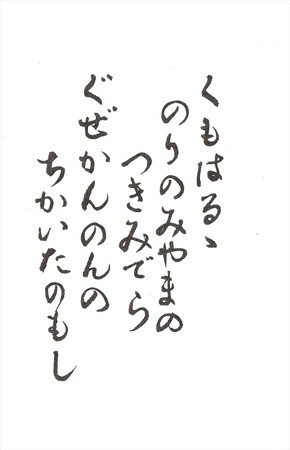 くもはるゝ
のりのみやまの
つきみでら
ぐぜかんのんの
ちかいたのもし